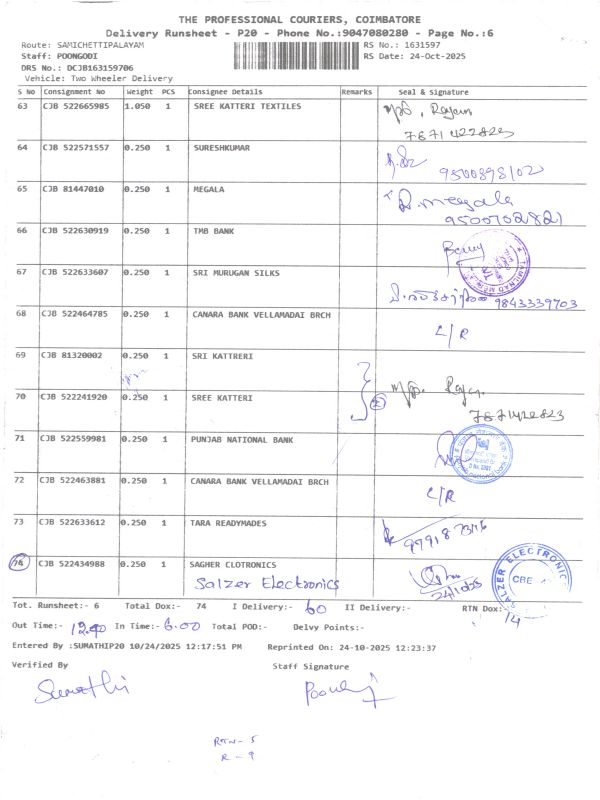 THE PROFESSIONAL COURIERS, COIMBATORE
Delivery Runsheet - P20 - Phone No.:9047080280 - Page No.:6
Route: SAMICHETTIPALAYAM RS No.: 1631597
Staff: POONGODI RS Date: 24-Oct-2025
DRS No.: DCJB163159706
Vehicle: Two Wheeler Delivery
S No Consignment No Weight PCS Consignee Details Remarks Seal & signature
63 CJB 522665985 1.050 1 SREE KATTERI TEXTILES
7871422823
64 CJB 522571557 0.250 1 SURESHKUMAR
9500898102
65 CJB 81447010 0.250 1 MEGALA D. Meegala
9500702821
66 CJB 522630919 0.250 1 TMB BANK
67 CJB 522633607 0.250 1 SRI MURUGAN SILKS
9843339703
68 CJB 522464785 0.250 1 CANARA BANK VELLAMADAI BRCH
L/R
69 CJB 81320002 0.250 1 SRI KATTRERI
70 CJB 522241920 0.250 1 SREE KATTERI
7871422823
71 CJB 522559981 0.250 1 PUNJAB NATIONAL BANK
72 CJB 522463881 0.250 1 CANARA BANK VELLAMADAI BRCH
L/R
73 CJB 522633612 0.250 1 TARA READYMADES
74 CJB 522434988 0.250 1 SAGHER CLOTRONICS
Salzer Electronics
24/10/25
SALZER ELECTRONICS
CBE
Tot. Runsheet:- 6 Total Dox:- 74 I Delivery:- 60 II Delivery:- RTN Dox:- 14
Out Time:- In Time:- 6.00 Total POD:- Delvy Points:-
Entered By :SUMATHIP20 10/24/2025 12:17:51 PM Reprinted On: 24-10-2025 12:23:37
Verified By Staff Signature
Sumathi
RTN- 5
R - 9